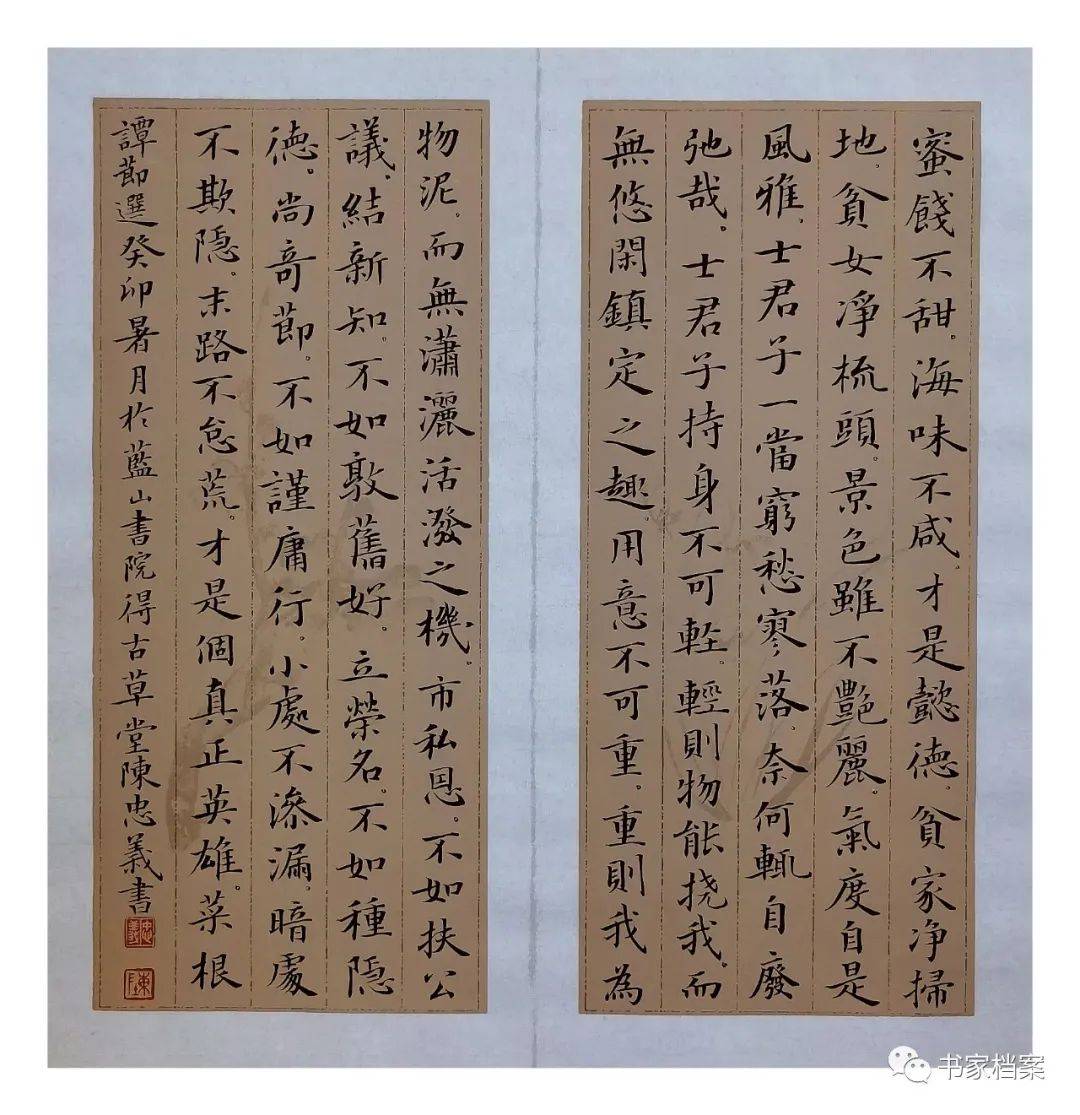 蜜餞不甜。海味不咸。才是懿德。貧家净掃
地。貧女淨梳頭。景色雖不艷麗。氣度自是
風雅。士君子一當窮愁寥落。奈何輒自廢
弛哉。士君子持身不可輕。輕則物能挠我。而
無悠閑鎮定之趣用意不可重。重則我為
物泥。而無瀟灑活潑之機。市私恩。不如扶公
議。結新知。不如敦舊好。立榮名。不如種隱
德。尚奇節。不如謹庸行。小處不滲漏。暗處
不欺隱。末路不怠荒。才是個真正英雄。菜根
譚節選癸卯暑月於藍山書院得古草堂陳忠義書
忠義
陳
书家档案